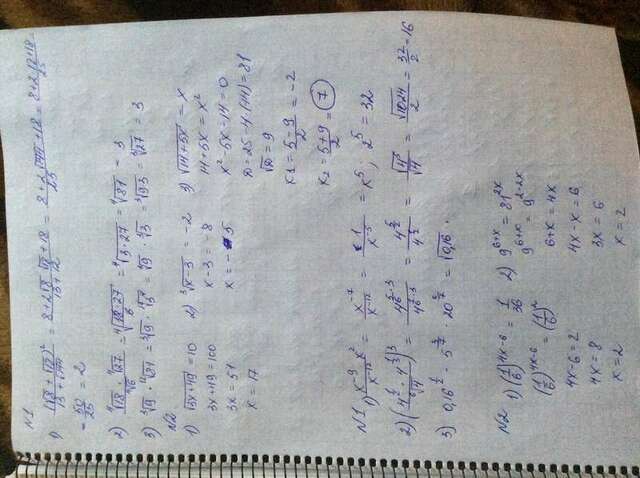 N1
1) (√8 + √18)² / (13 + √144) = (8 + 2√8 √18 + 18) / (13 + 12) = (8 + 2√144 + 18) / 25 =
= 50/25 = 2
2) ⁴√18 · ⁴√27 / ⁴√6 = ⁴√(18·27 / 6) = ⁴√(3·27) = ⁴√81 = 3
3) ³√9 · ⁶√9 = ³√9 · ³√3 = ³√(9·3) = ³√27 = 3
N2
1) √(3x+49) = 10
3x+49 = 100
3x = 51
x = 17
2) ³√(x-3) = -2
x-3 = -8
x = -5
3) √(14+5x) = x
14+5x = x²
x²-5x-14 = 0
D = 25-4·(-14) = 81
√D = 9
x1 = (5-9)/2 = -2
x2 = (5+9)/2 = 7
N1 1) x⁻⁹ x² / x⁻¹² = x⁻⁷ / x⁻¹² = 1 / x⁻⁵ = x⁵; 2⁵ = 32
= √4⁵ / √4 = √1024 / 2 = 32/2 = 16
3) 0,16^(1/2) · 5^(2/7) · 20^(2/7) = √0,16 ·
N2 1) (1/6)^(4x-6) = 1/36
(1/6)^(4x-6) = (1/6)²
4x-6 = 2
4x = 8
x = 2
2) 9^(6+x) = 81^(2x)
9^(6+x) = 9^(2·2x)
6+x = 4x
4x-x = 6
3x = 6
x = 2